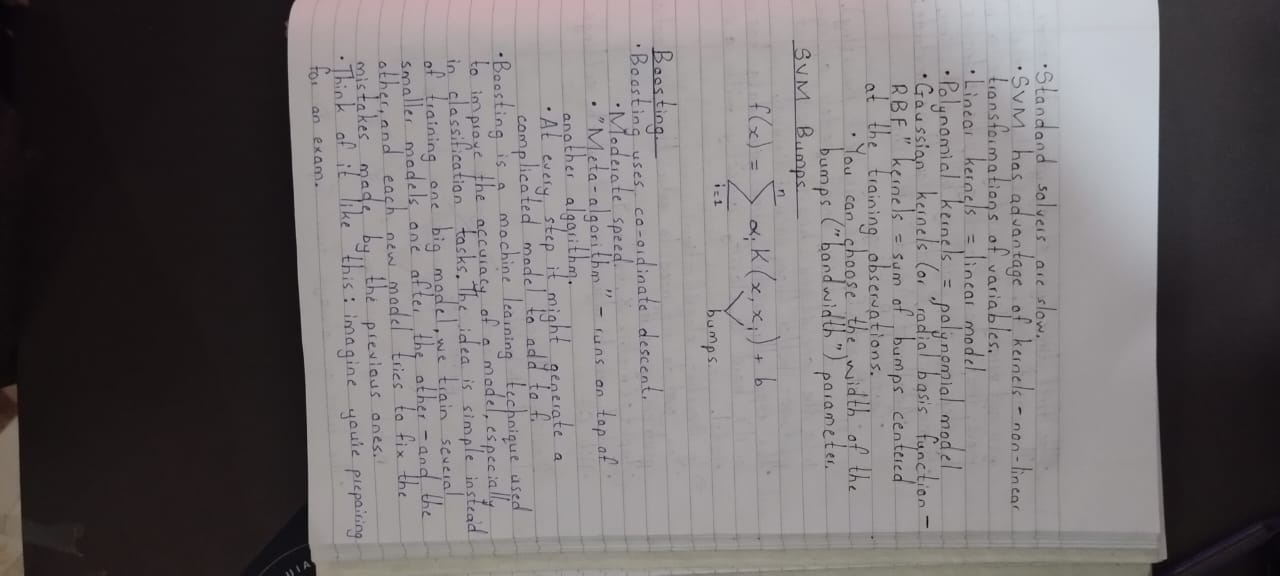 • Standard solvers are slow.
• SVM has advantage of kernels - non-linear
transformations of variables.
• Linear kernels = linear model
• Polynomial kernels = polynomial model
• Gaussian kernels (or radial basis function -
RBF" kernels = sum of bumps centered
at the training observations.
• You can choose the width of the
bumps ("bandwidth") parameter.
SVM Bumps
f(x) = n∑i=1 αᵢ K(x, xᵢ) + b
bumps
Boosting
• Boosting uses co-ordinate descent.
• Moderate speed.
• "Meta-algorithm" - runs on top of
another algorithm.
• At every step it might generate a
complicated model to add to f.
• Boosting is a machine learning technique used
to improve the accuracy of a model, especially
in classification tasks. The idea is simple instead
of training one big model, we train several
smaller models one after the other - and the
other, and each new model tries to fix the
mistakes made by the previous ones.
• Think of it like this: imagine you're prepairing
for an exam.